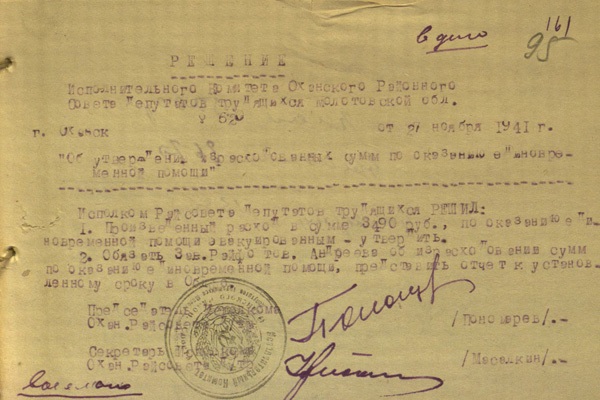 в дело
161
95
РЕШЕНИЕ
Исполнительного Комитета Оханского Районного
Совета депутатов трудящихся молотовской обл.
г. Оханск от 21 ноября 1941 г.
"Об утверждении израсходованных сумм по оказанию единовре-
менной помощи"
Исполком Райсовета депутатов трудящихся РЕШИЛ:
1. Произведенный расход в сумме 3490 руб., по оказанию еди-
новременной помощи эвакуированным - утвердить.
2. Обязать Зав.Райфотов. Андреева об израсходовании сумм
по оказанию единовременной помощи, представить отчет к установ-
ленному сроку в
Председатель Исполкома
Охан.Райсовета /Пономарев/.-
Секретарь Исполкома
Охан.Райсовета /Масалкин/.-